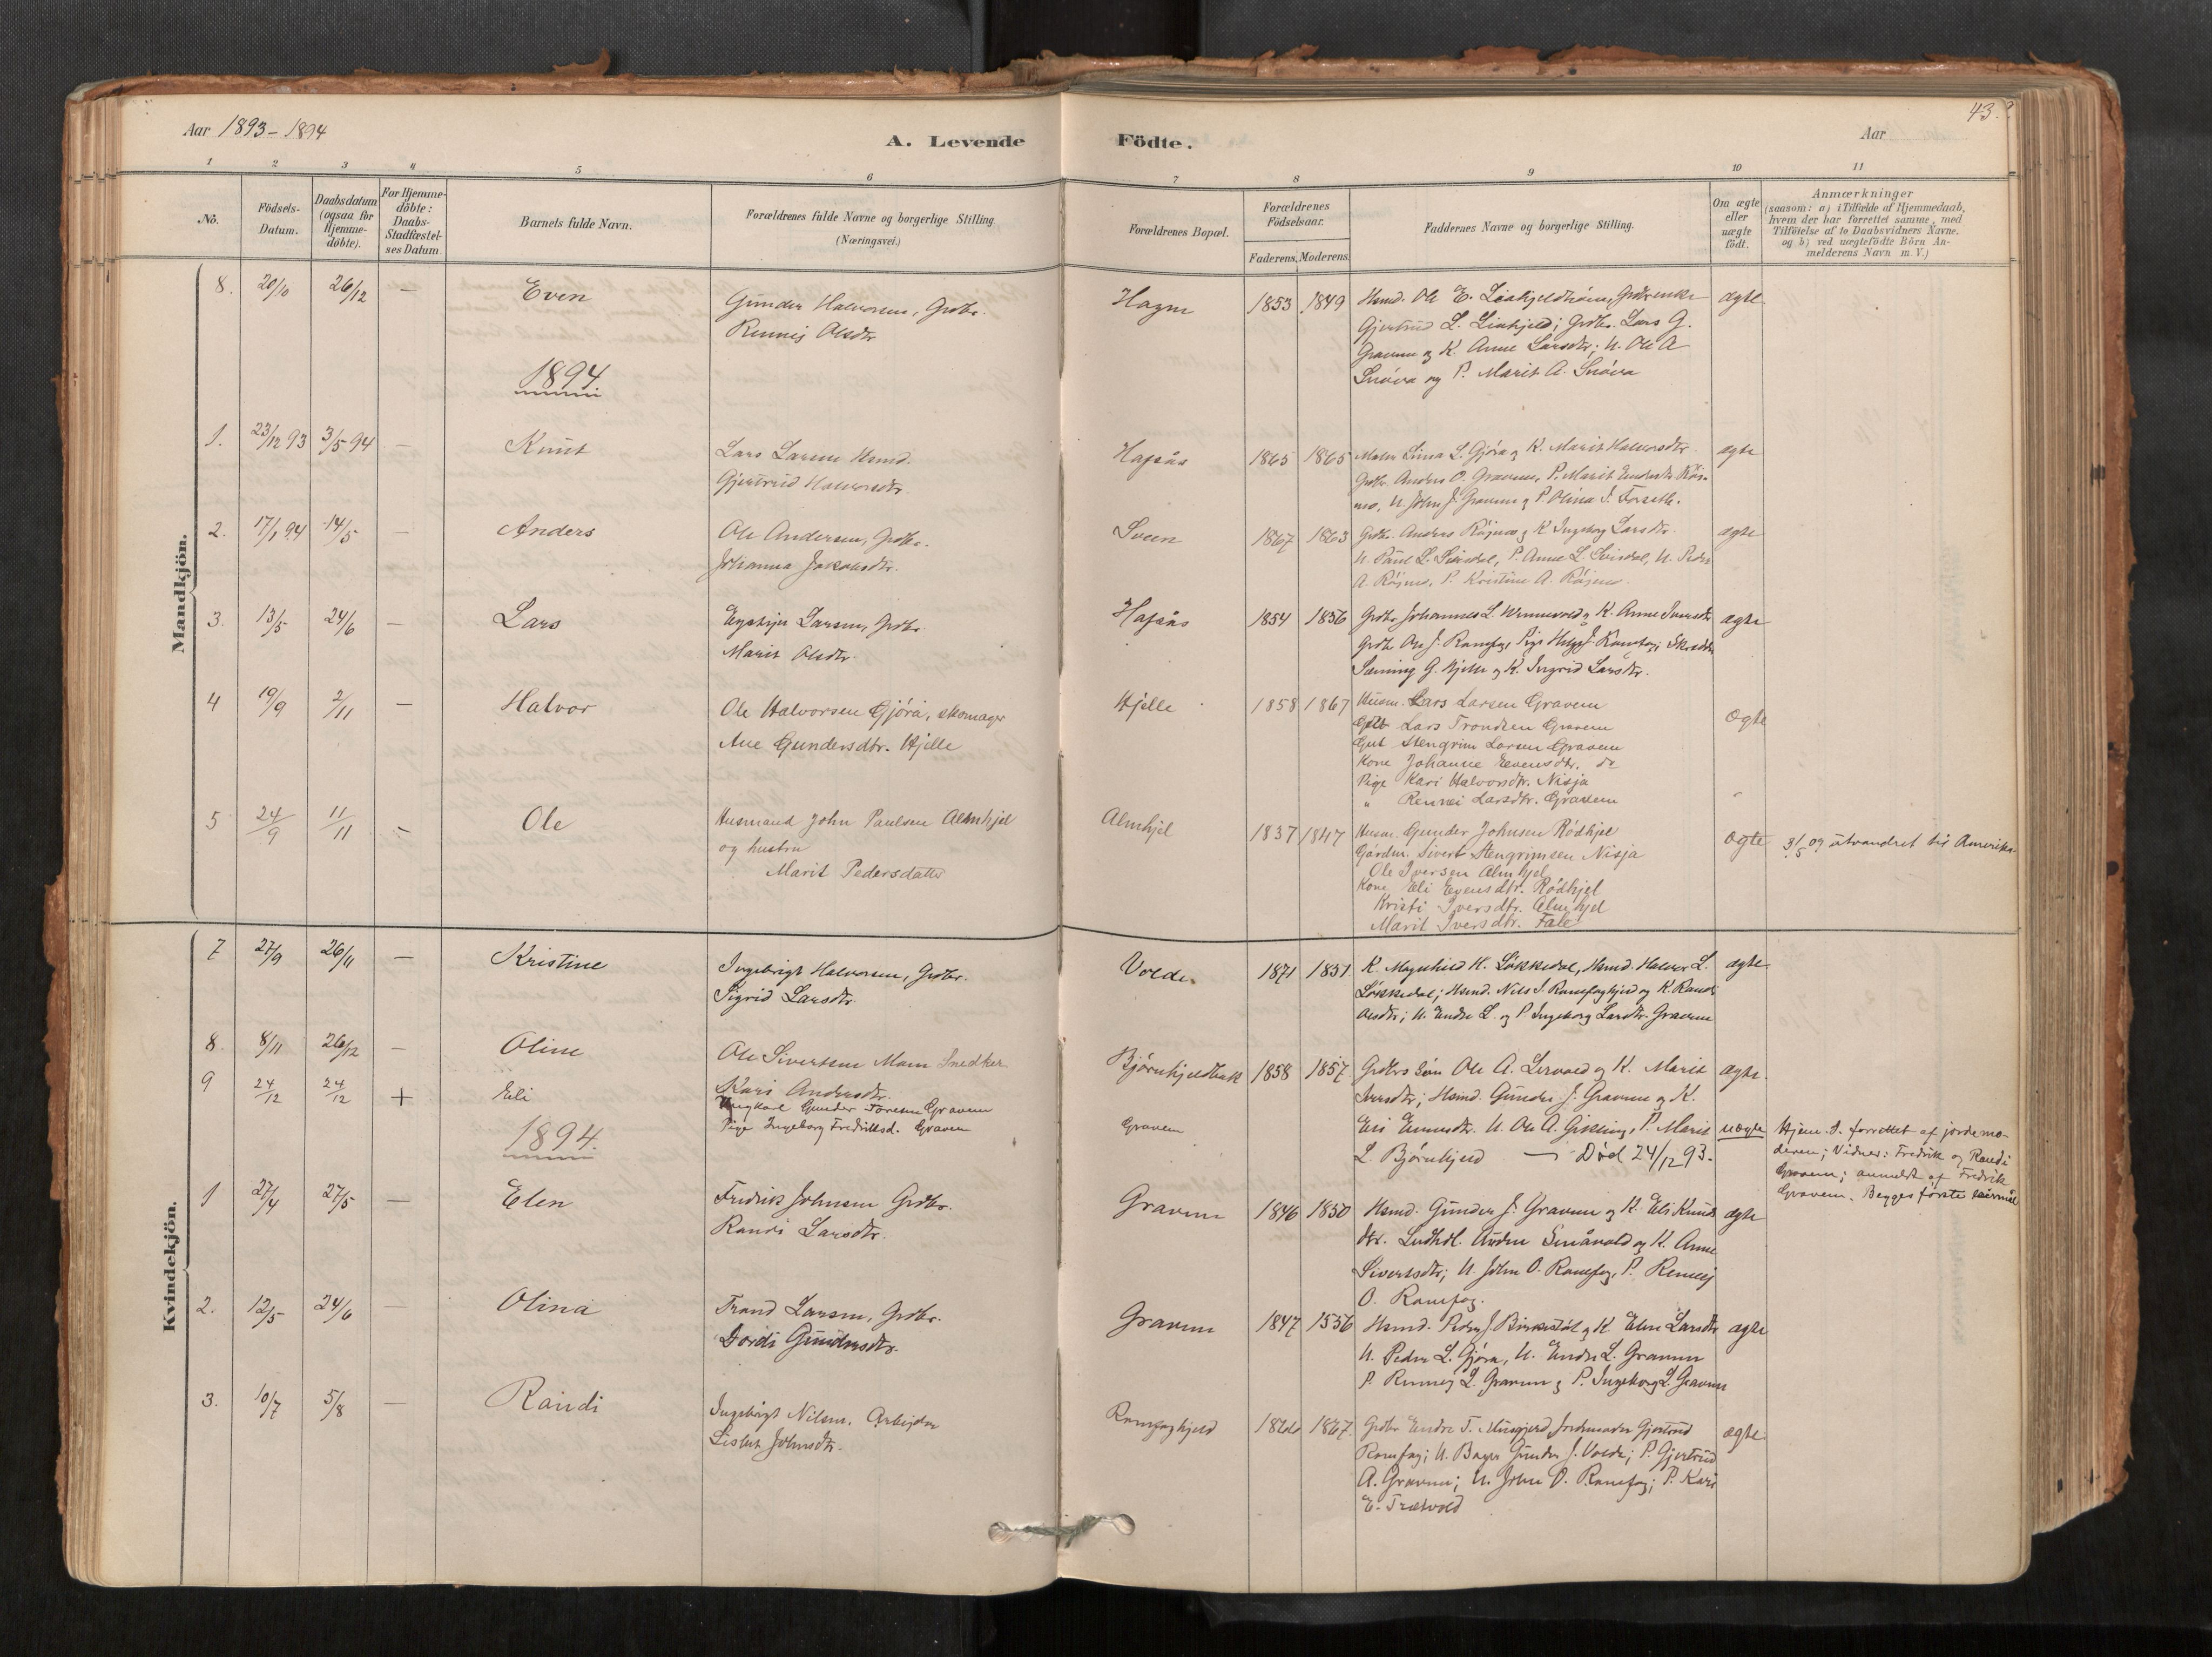 Aar 1893-1894
A. Levende Födte.
Aar
43.
1 2 3 4 5 6 7 8 9 10 11
No.
Födsels-
Datum.
Daabsdatum
(ogsaa for
Hjemme-
döbte).
For Hjemme-
döbte:
Daabs-
Stadfæstel-
ses Datum.
Barnets fulde Navn.
Forældrenes fulde Navne og borgerlige Stilling.
(Næringsvei.)
Forældrenes Bopæl.
Forældrenes
Födselsaar.
Faderens. Moderens.
Faddernes Navne og borgerlige Stilling.
Om ægte
eller
uægte
födt.
Anmærkninger
(saasom: a) i Tilfælde af Hjemmedaab,
hvem der har forrettet samme, med
Tilföielse af to Daabsvidners Navne.
og b) ved uægtefödte Börn An-
melderens Navn m. V.)
Mandkjön.
8. 20/10 26/12 — Even
Gunder Halvorsen, Grdbr.
Rennei Olsdtr
1853 1849
Gjertrud L. Liahjeld; Grdbr. Lars G.
Gravem og K. Anne Larsdtr; U. Ole A
Snöva og P. Marit A. Snöva
ægte
1894
1. 23/12 93 3/5 94 — Knut
Lars Larsen Hsmd.
Gjertrud Halvorsdtr.
Hafsås 1865 1865
L. Gjöra og K. Marit Halvorsdtr.
Grdbr. Anders O. Gravem, P. Marit
mo, U. John J. Gravem og P. Olina J. Forseth.
ægte
2. 17/1 94 14/5 — Anders
Ole Andersen, Grdbr.
Johanna Jakobsdtr.
Sveen 1867 1863
Grdbr. Anders Röjmo og K Ingeborg Larsdtr.
A. Röjmo, P. Kristine A. Röjmo.
ægte
3. 13/5 24/6 — Lars
Larsen, Grdbr.
Marit Olsdtr.
Hafsås 1854 1856
Grdbr. Johannes L. og K. Anne Iversdtr
G. Hjelle og K. Ingrid Larsdtr.
ægte
4 19/9 2/11 — Halvor
Ole Halvorsen Gjöra, skomager
Ane Gundersdtr. Hjelle
Hjelle 1858 1867
Husm. Lars Larsen Gravem
Lars Trondsen Gravem
Gut Stengrim Larsen Gravem
Kone Johanne Evensdtr. do
Pige Kari Halvorsdtr. Nisja
" Rennei Larsdtr. Gravem
ægte
5 24/9 11/11 — Ole
Husmand John Paulsen Almhjel
og hustru
Marit Pedersdatter
Almhjel 1837 1847
Husm. Gunder Johnsen Rödhjel
Gårdm. Sivert Stengrimsen Nisja
Ole Iversen Almhjel
Kone Eli Evensdtr. Rödhjel
Kristi Iversdtr. Almhjel
Marit Iversdtr. Fale
ægte
3/5 09 utvandret til Amerika.
Kvindekjön.
7 27/9 26/11 — Kristine
Ingebrigt Halvorsen, Grdbr.
Sigrid Larsdtr.
Volde. 1871
K. Magnhild H. Lökkedal, Hsmd. Halvor L.
Lökkedal; Hsmd. Nils J. Ramsfaghjeld og K. Randi
Olsdtr; U. Endre L. og P Ingeborg Larsdtr. Gravem
ægte
8. 8/11 26/12 — Oline
Ole Sivertsen Moen Snedker
Kari Andersdtr.
Bjørnhjeldbak 1858 1857.
Grdbrs Sön Ole A. Lervold og K. Marit
Hsmd. Gunder J. Gravem og K.
Eli U. Ole A. Gikling, P. Marit
L. Bjørnhjeld
ægte.
9 24/12 24/12 + Eli
Ungkarl Gunder Toresen Gravem
Pige Ingeborg Fredriksd. Gravem
Gravem
— Död 24/12 93.
uægte
Hjem. D. forrettet af jordemo-
deren; Vidner: Fredrik og Randi
Gravem; anmeldt af Fredrik
Gravem. Begges første leiermål
1894.
1 27/4 27/5 — Elen
Fredrik Johnsen Grdbr.
Randi Larsdtr.
Gravem 1846 1850
Hsmd. Gunder J. Gravem og K. Eli Knuds
dtr. Landhdl. Anders Småvold og K. Anne
Sivertsdtr; U. John O. Ramsfag, P. Rennei
O. Ramsfag.
ægte
2. 12/5 24/6 — Olina
Trond Larsen, Grdbr.
Dordi Gundersdtr.
Gravem 1847 1856
Hsmd. Peder J. og K Elen Larsdtr
U. Peder L. Gjöra, U. Endre L. Gravem
P. Rennei L. Gravem og P. Ingeborg L. Gravem
ægte
3. 10/7 5/8 — Randi
Ingebrigt Nilsen, Arbejder
Lisbet Johnsdtr.
Ramsfaghjeld 1867.
Grdbr. Endre T. Musgjerd, Jordemoder Gjertrud
Ramsfag; U. Bager Gunder J. Volde; P. Gjertrud
A. Gravem; U. John O. Ramsfag; P. Kari
E. Trætvold
ægte.